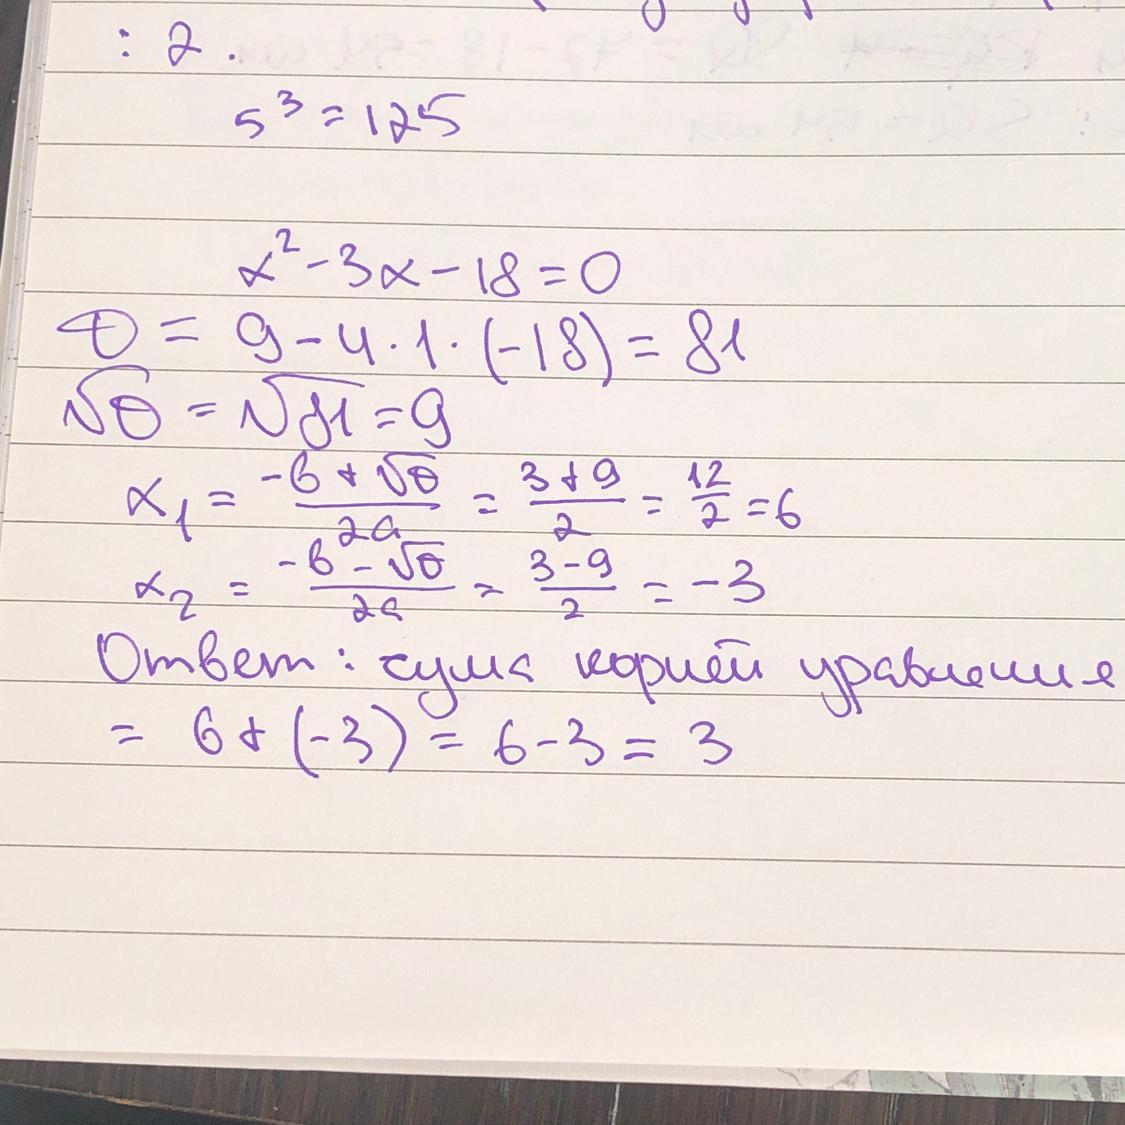 : 2.
5³ = 125
x² - 3x - 18 = 0
D = 9 - 4 · 1 · (-18) = 81
√D = √81 = 9
x₁ = (-b + √D)/2a = (3 + 9)/2 = 12/2 = 6
x₂ = (-b - √D)/2a = (3 - 9)/2 = -3
Ответ: сума корней уравнение
= 6 + (-3) = 6 - 3 = 3